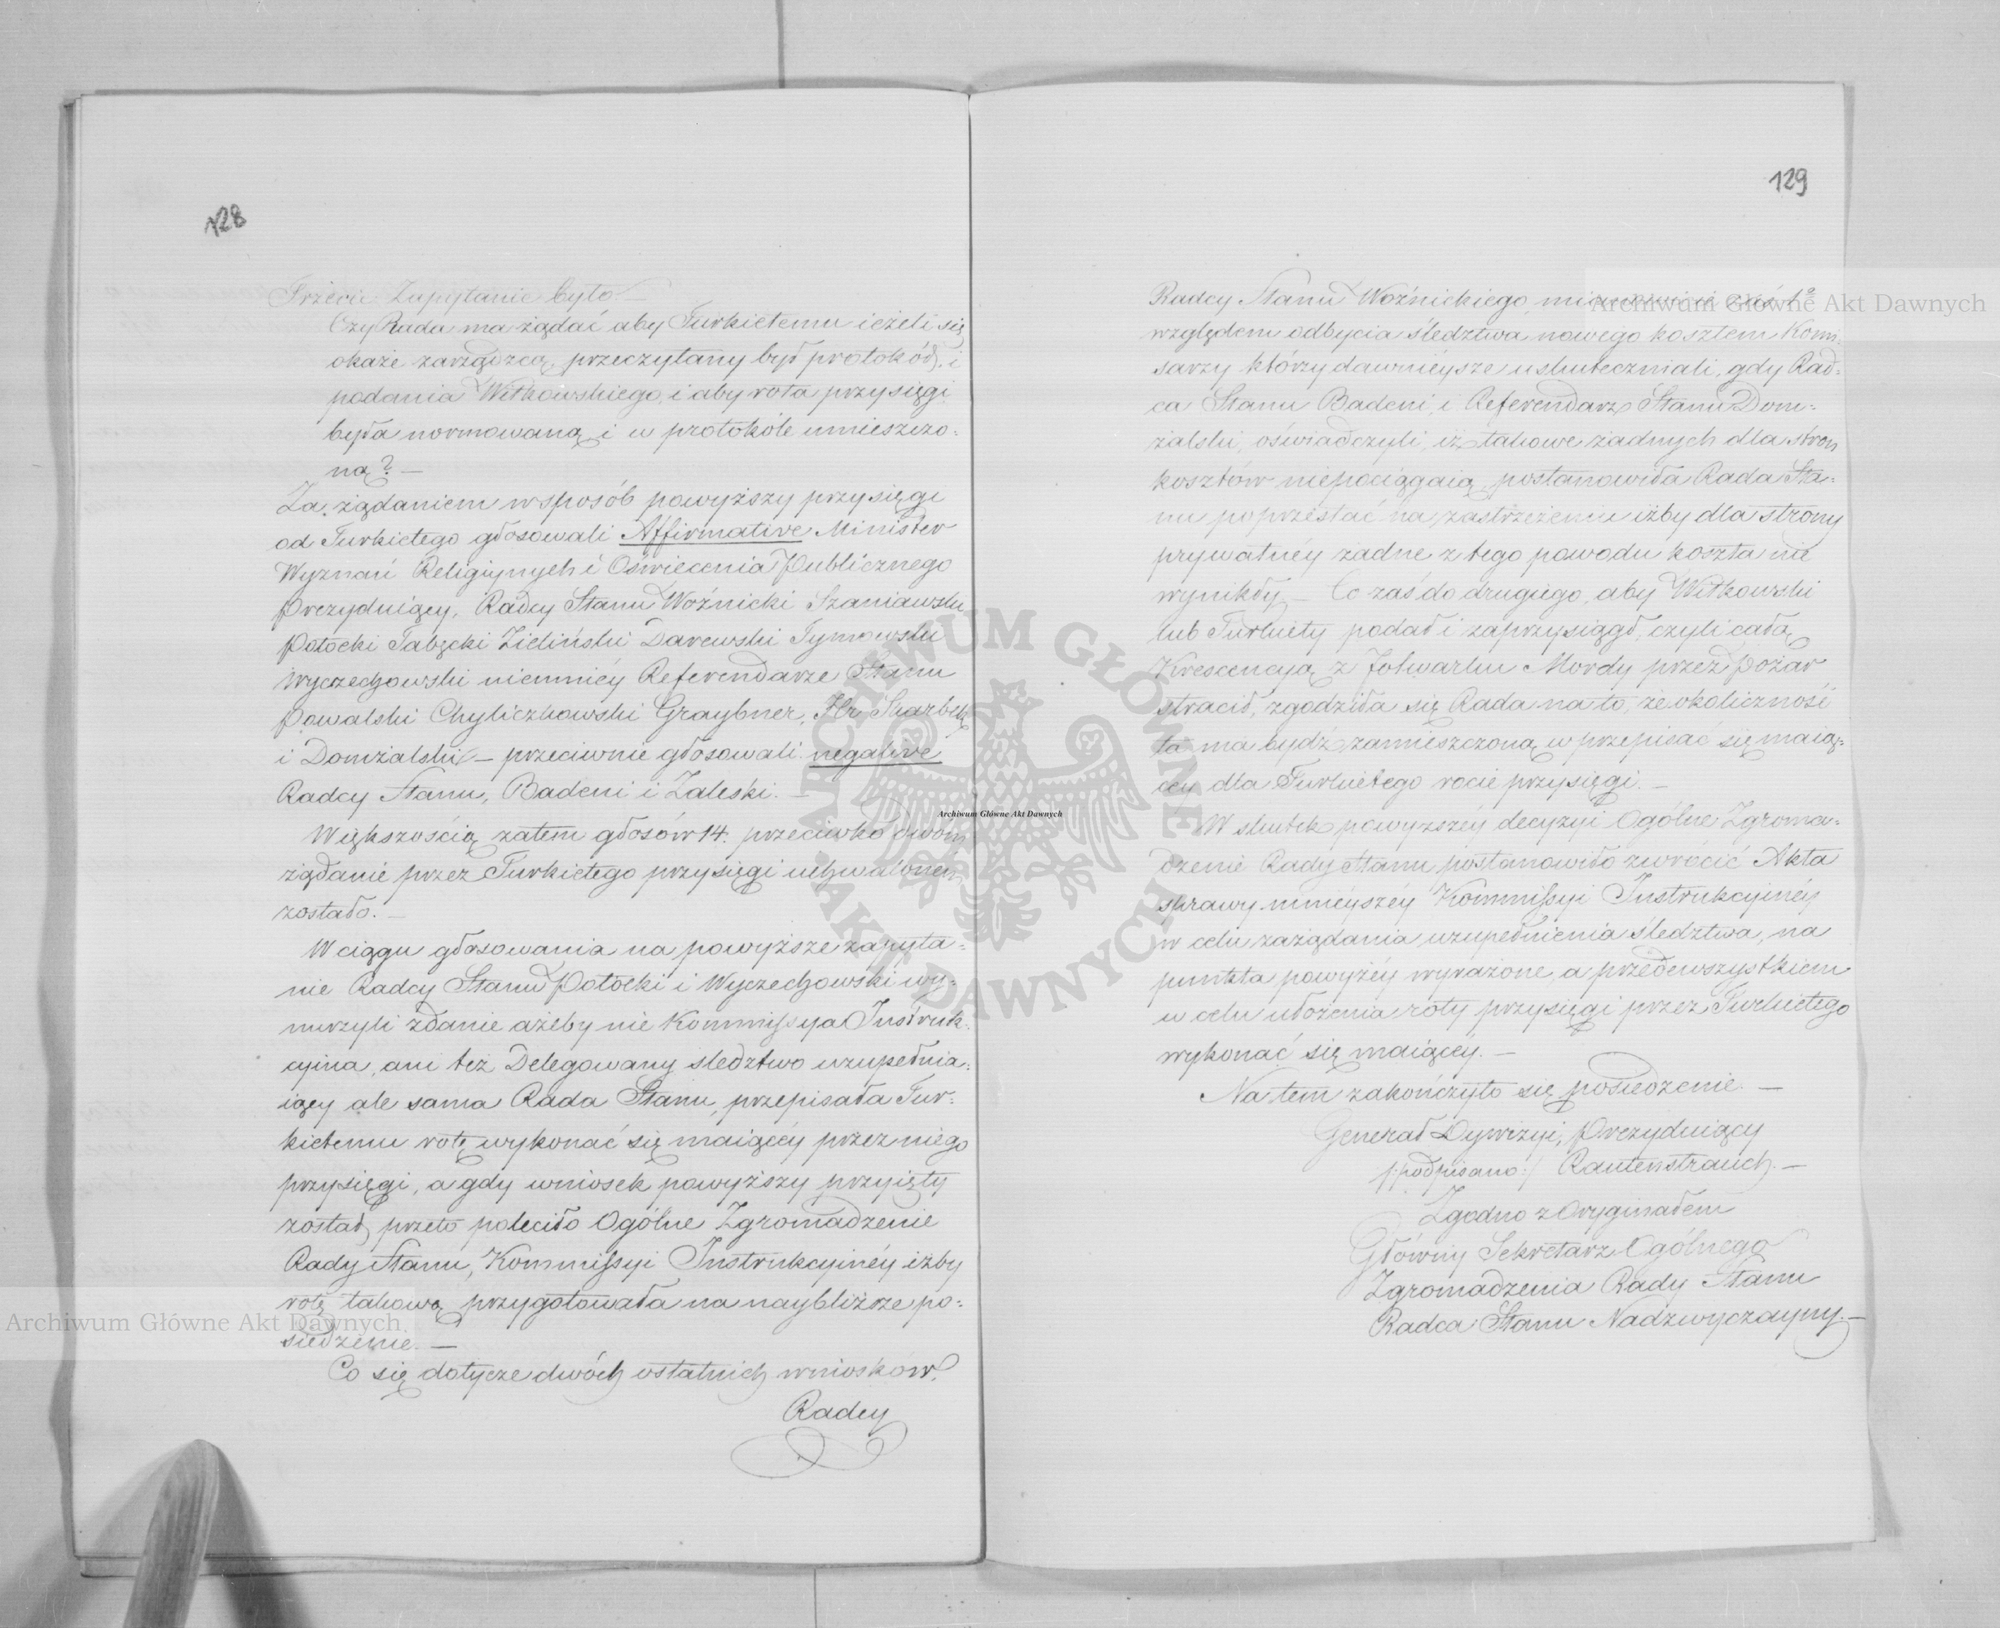 128
Trzecie Zapytanie było —
Czy Rada ma żądać aby Turkietemu ieżeli się
okaże zarządzcą, przeczytany był protokół, i
podania Witkowskiego, i aby rota przysięgi
była normowaną i w protokóle umieszczo-
ną? —
Za żądaniem w sposób powyższy przysięgi
od Turkietego głosowali Affirmative Minister
Wyznań Religiynych i Oświecenia Publicznego
Prezyduiący, Radcy Stanu Woźnicki Szaniawski
Potocki Tabęcki Zieliński Darewski Tymowski
Wyczechowski niemniéy Referendarze Stanu
Powalski Chyliczkowski Graybner, Hr. Skarbek
i Domżalski — przeciwnie głosowali negative
Radcy Stanu, Badeni i Zaleski. —
Większością zatem głosów 14. przeciwko dwom
żądanie przez Turkietego przysięgi uchwaloném
zostało. —
W ciągu głosowania na powyższe zapyta-
nie Radcy Stanu Potocki i Wyczechowski wy-
nurzyli zdanie ażeby nie Kommissya Instruk-
cyina, ani też Delegowany sledztwo uzupełnia-
iący ale sama Rada Stanu, przepisała Tur-
kietemu rotę wykonać się maiącéy przez niego
przysięgi, a gdy wniosek powyższy przyięty
został, przeto poleciło Ogólne Zgromadzenie
Rady Stanu, Kommissyi Instrukcyinéy iżby
rotę takową przygotowała na naybliższe po-
siedzenie. —
Co się dotycze dwóch ostatnich wniosków.
Radcy
129
Radcy Stanu Woźnickiego, mianowicie zaś 1º
względem odbycia śledztwa nowego kosztem Komi-
sarzy którzy dawnieysze uskuteczniali, gdy Rad-
ca Stanu Badeni i Referendarz Stanu Dom-
żalski, oświadczyli, iż takowe żadnych dla stron
kosztów niepociągaią, postanowiła Rada Sta-
nu poprzestać na zastrzeżeniu iżby dla strony
prywatnéy żadne z tego powodu koszta nie
wynikły — Co zaś do drugiego, aby Witkowski
lub Turkiety podał i zaprzysiągł, czyli całą
Krescencyą z folwarku Mordy przez pożar
stracił, zgodziła się Rada na to, że okoliczność
ta ma bydź zamieszczoną w przepisać się maią-
cey dla Turkietego rocie przysięgi. —
W skutek powyższéy decyzyi Ogólne Zgroma-
dzenie Rady Stanu postanowiło zwrócić Akta
sprawy ninieyszéy Kommissyi Instrukcyinéy
w celu zażądania uzupełnienia śledztwa, na
punkta powyżéy wyrażone, a przedewszystkiem
w celu ułożenia roty przysięgi przez Turkietego
wykonać się maiącéy. —
Na tem zakończyło się posiedzenie. —
Generał Dywizyi, Prezyduiący
/:podpisano:/ Rautenstrauch. —
Zgodno z Oryginałem
Główny Sekretarz Ogólnego
Zgromadzenia Rady Stanu
Radca Stanu Nadzwyczayny. —
Archiwum Główne Akt Dawnych
Archiwum Główne Akt Dawnych
Archiwum Główne Akt Dawnych
ARCHIWUM GŁÓWNE
AKT DAWNYCH